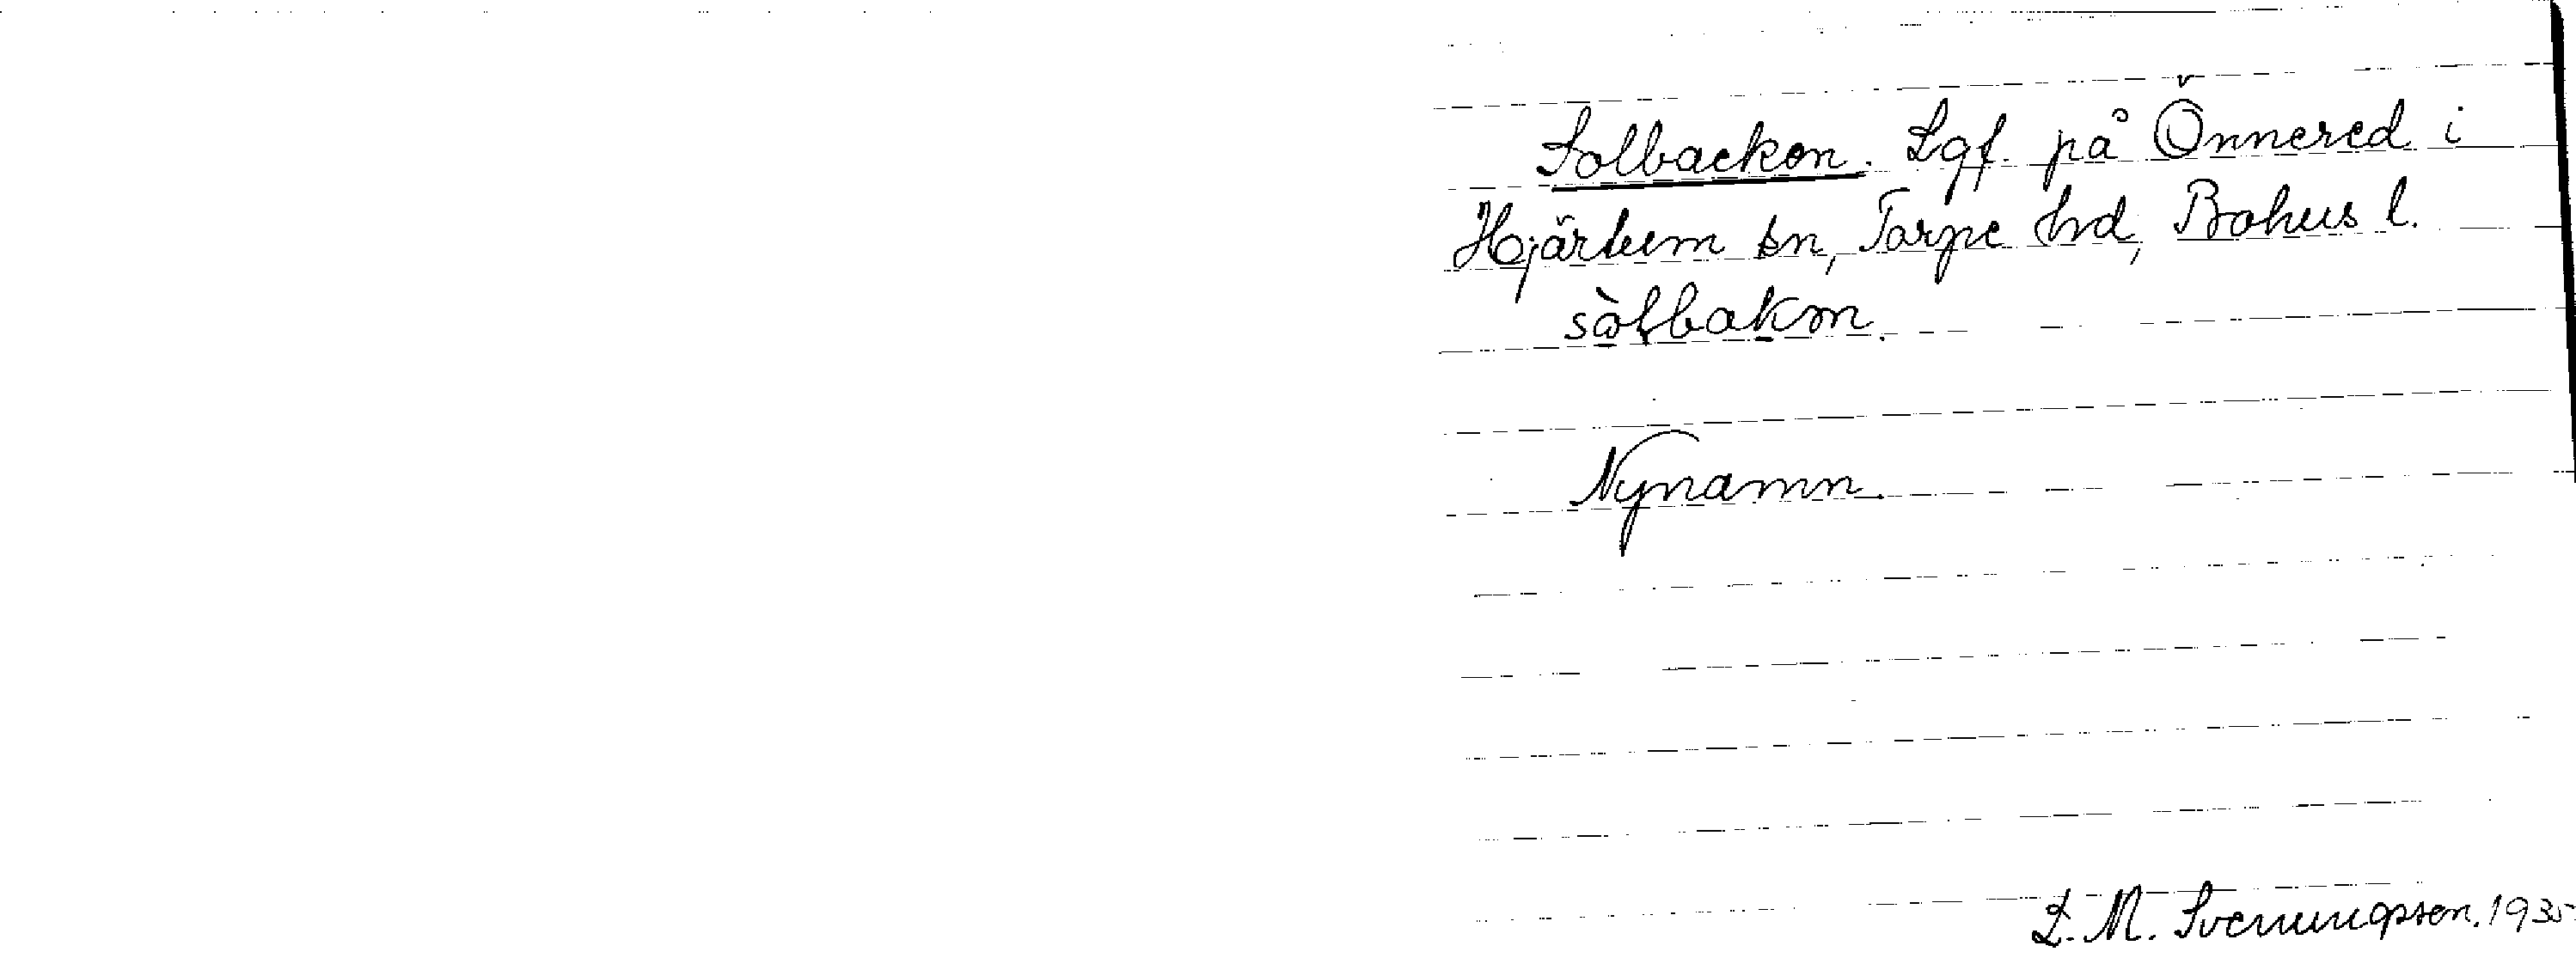 Solbacken. Lgf. på Önnered i
Hjärtum sn, Torpe hd, Bohus l.
sòlbakɳ.
Nynamn.
L. M. Svenungsson. 1935